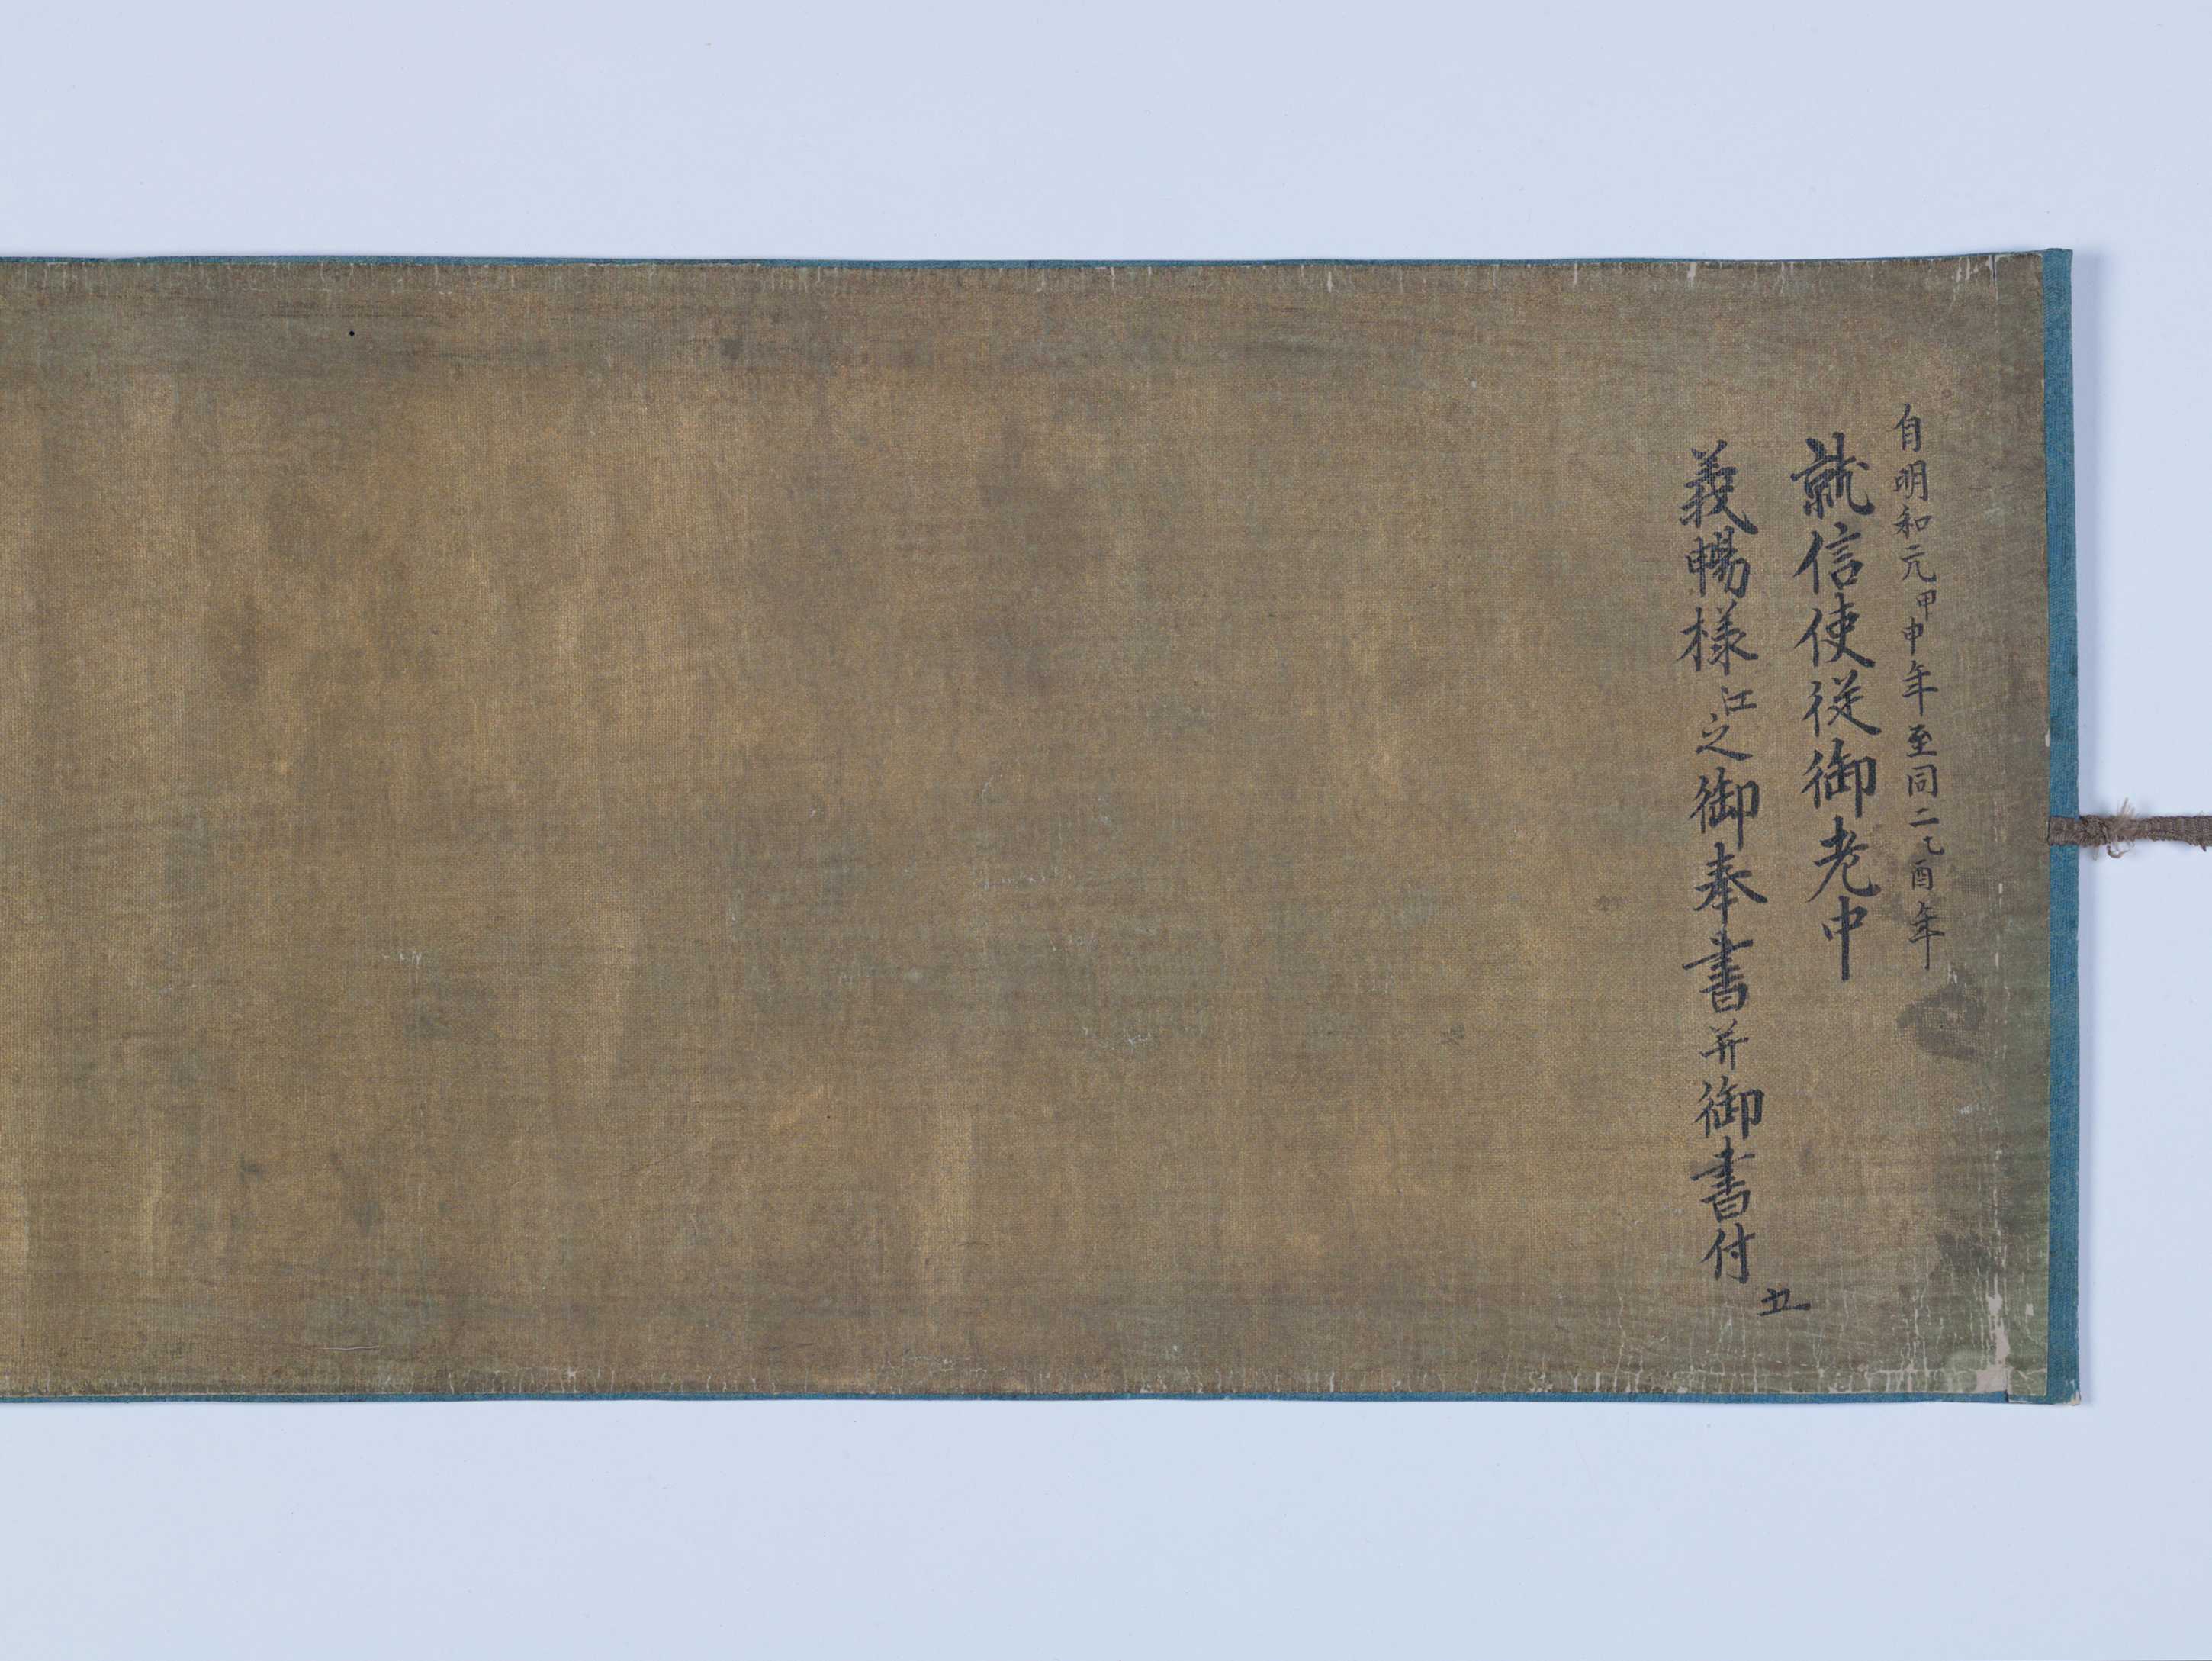 自明和元甲申年至同二乙酉年
就信使従御老中
義暢様江之御奉書并御書付
五